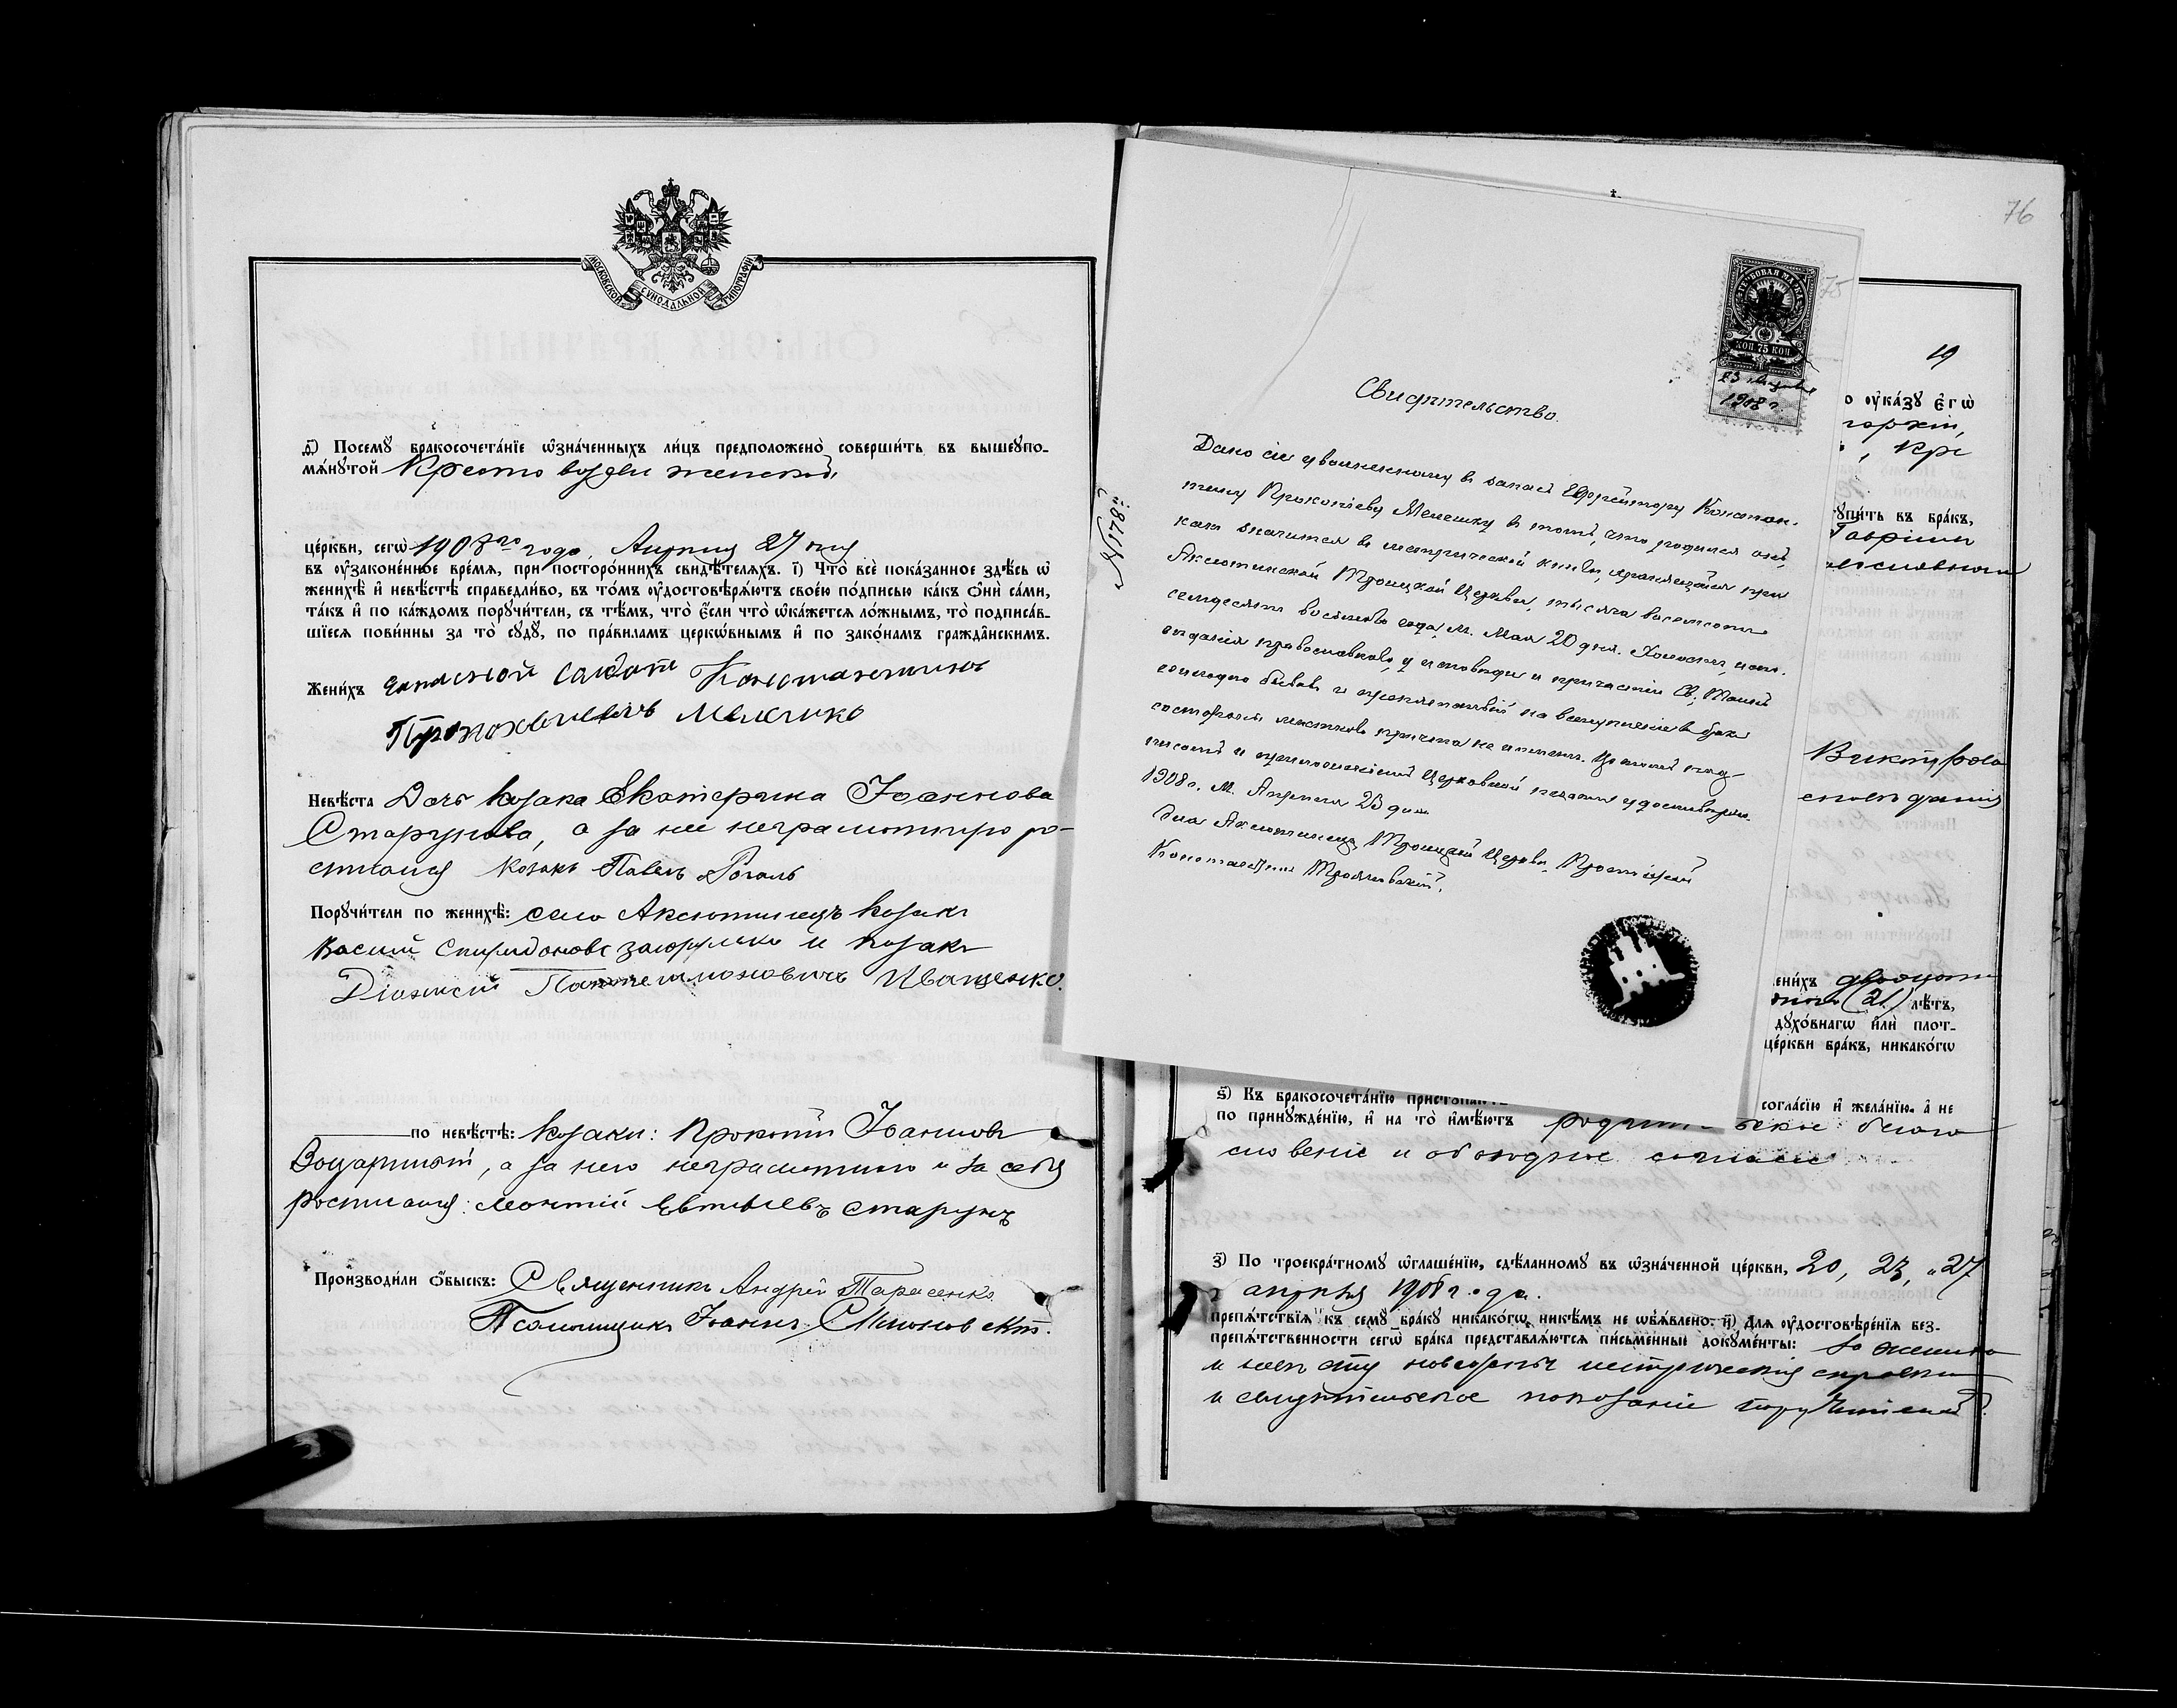 МОСКОВСКОЙ СѴНОДАЛЬНОЙ ТИПОГРАФІИ
ѳ҃) Посемꙋ бракосочета́нїе ѡ҆зна́ченныхъ ли́цъ предположено̀ соверши́ть въ вышеꙋпо-
мѧ́нꙋтой Кресто воздвиженской
це́ркви, сегѡ̀ 1908го года, Апрѣля 27 дня
въ ᲂу҆зако́не́нное вре́мѧ, при посторо́ннихъ свидѣ́телѧхъ. і҃) Что̀ всѐ пока́занное здѣ́сь ѡ҆
женихѣ̀ и҆ невѣ́стѣ справедли́во, въ то́мъ ᲂу҆достовѣрѧ́ютъ свое́ю по́дписью ка́къ ѻ҆нѝ са́ми,
та́къ и҆ по ка́ждомъ порꙋчи́тели, съ тѣ́мъ, что̀ є҆́сли что̀ ѡ҆ка́жетсѧ ло́жнымъ, то̀ подписа́в-
шїесѧ пови́нны за то̀ сꙋдꙋ̀, по пра́виламъ церко́внымъ и҆ по зако́намъ гражда́нскимъ.
Жени́хъ запасной солдатъ Константинъ
Прокопьевичъ Мелешко
Невѣ́ста Дочь козака Екатерина Іоаннова
Старунова, а за нее неграмотную ро-
списался козакъ Павелъ Рогаль
Порꙋчи́тели по женихѣ̀: села Аксютинецъ козакъ
Василій Спиридоновъ и козакъ
Діонисій Пантелимоновичъ Иващенко.
по невѣ́стѣ: козаки: Прокопій Іоанновъ
, а за него неграмотного и за себя
росписался: Леонтій Евтиѳіевъ Старунъ
Произво́дили ѻ҆́быскъ: Священникъ Андрей Тарасенко
Псаломщикъ Іоаннъ Симоновскій.
76
75
ГЕРБОВАЯ МАРКА
КОП 75 КОП
23 Апрѣля
1908 г.
№178й
Свидѣтельство.
Дано сіе уволенному въ запасъ Ефрейтору Констан-
тину Прокопіеву Мелешку въ томъ, что родился онъ,
какъ значится въ метрической книгѣ, хранящейся при
Аксютинской Троицкой Церкви, тысяча восемсотъ
семдесятъ восьмого года, м. Мая 20 дня. Холостъ, испо-
вѣданія православнаго, у исповѣди и причастія Св. Тайнъ
ежегодно бывалъ и препятствій на вступленіе въ бракъ
со стороны мѣстнаго причта не имѣетъ. Въ чемъ под-
писомъ и приложеніемъ Церковной печати удостовѣряю.
1908 г. М. Апрѣля 23 дня
Села Аксютинецъ Троицкой Церкви, Протоіерей
Константинъ
19
о ᲂу҆ка́зꙋ є҆гѡ̀
, Кре
ꙋпи́ть въ бра́къ,
Гавріилъ
Викторова
ени́хъ двадцати
(21) лѣ́тъ,
дꙋхо́внагѡ и҆лѝ плот-
це́ркви бра́къ, никако́гѡ
ѕ҃) Къ бракосочета́нїю пристꙋпаютъ согла́сїю и҆ жела́нїю, а҆ не
по принꙋжде́нїю, и҆ на то̀ и҆мѣ́ютъ родительское благо
словеніе и обоюдное согласіе
з҃) По троекра́тномꙋ ѡ҆глаше́нїю, сдѣ́ланномꙋ въ ѡ҆зна́ченной це́ркви, 20, 23, и 27
апрѣля 1908 года.
препѧ́тствїѧ къ семꙋ̀ бра́кꙋ никако́гѡ никѣ́мъ не ѡ҆б̾ѧ́влено. и҃) Длѧ ᲂу҆достовѣре́нїѧ без-
препѧ́тственности сегѡ̀ бра́ка представлѧ́ютсѧ пи́сьменные докꙋме́нты: За жениха
и невѣсту метрическія справки
и свидѣтельское показаніе поручителей.